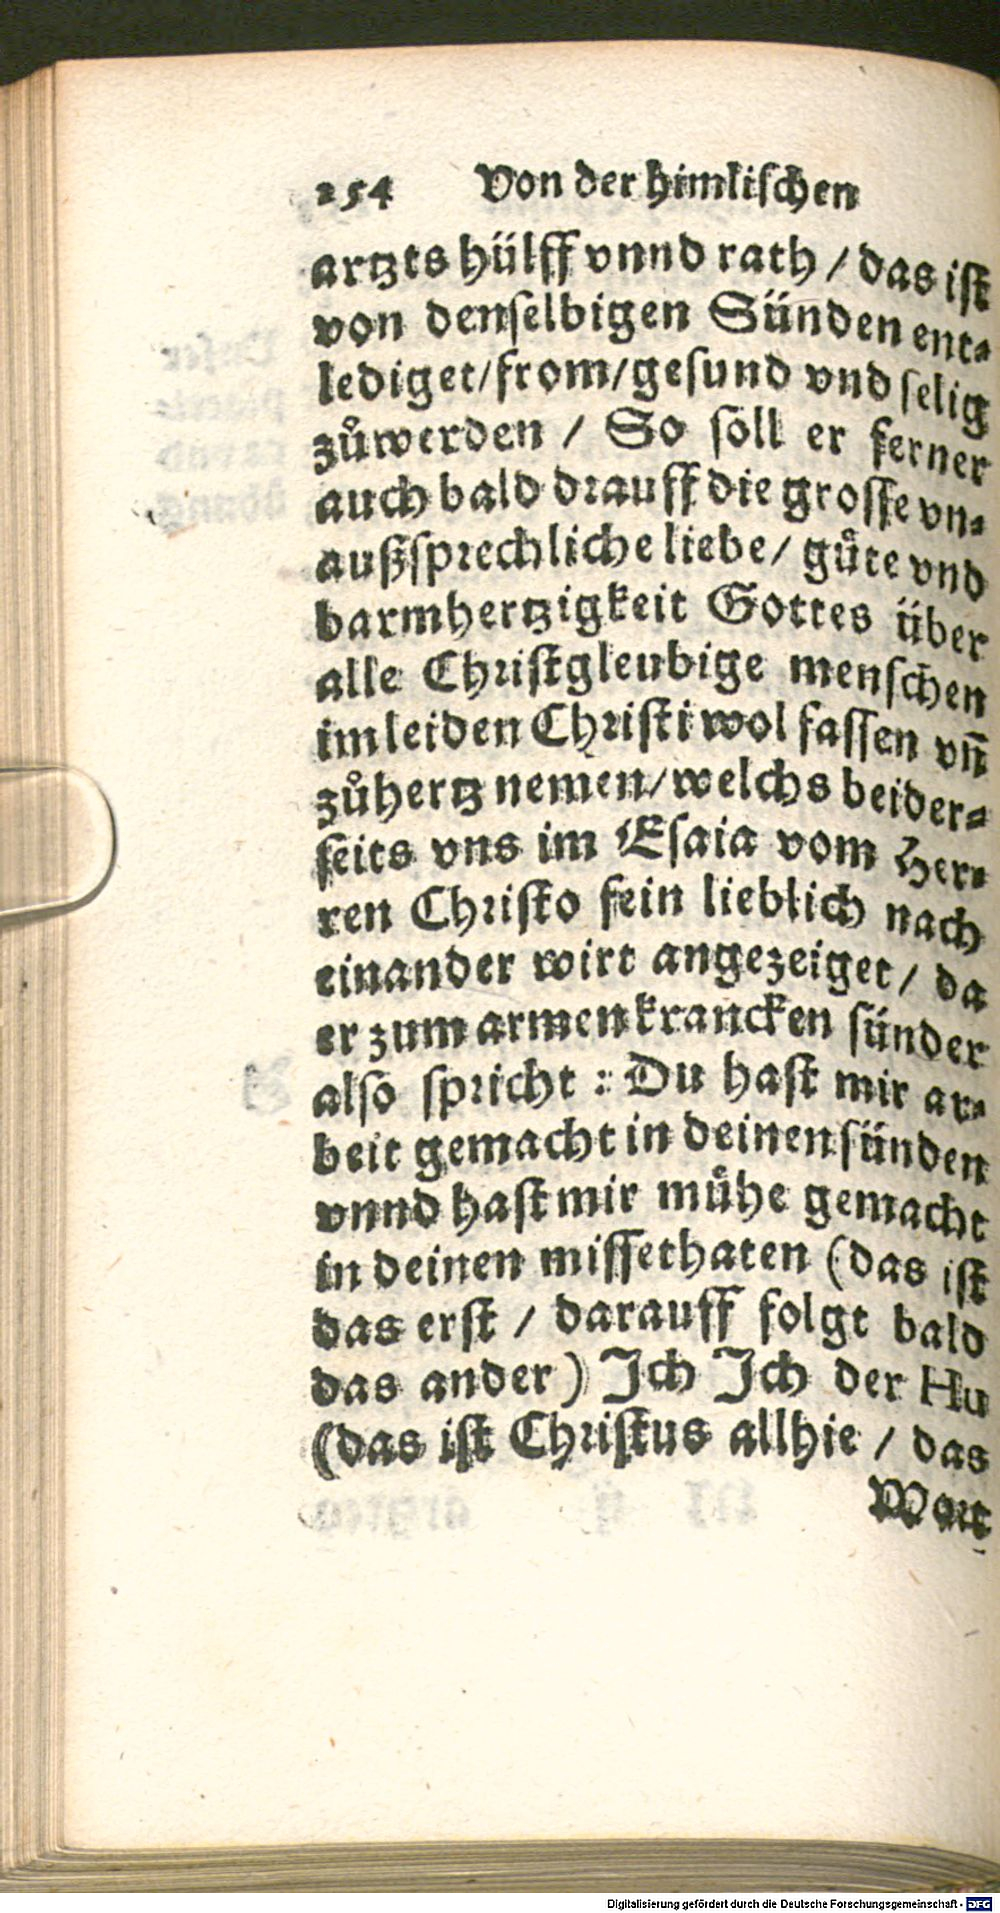 254 Von der himlischen
artzts hülff vnnd rath / das ist
von denselbigen Sünden ent⸗
lediget/from/gesund vnd selig
zůwerden / So soll er ferner
auch bald drauff die grosse vn⸗
außsprechliche liebe/ gůte vnd
barmhertzigkeit Gottes über
alle Christgleubige menschen
im leiden Christi wol fassen vñ
zůhertz nemen/welchs beider⸗
seits vns im Esaia vom Her⸗
ren Christo fein lieblich nach
einander wirt angezeiget / da
er zum armen krancken sünder
also spricht : Du hast mir ar⸗
beit gemacht in deinen sünden
vnnd hast mir můhe gemacht
in deinen missethaten (das ist
das erst / darauff folgt bald
das ander) Ich Ich der Hu
(das ist Christus allhie / das
Wort
Digitalisierung gefördert durch die Deutsche Forschungsgemeinschaft - DFG